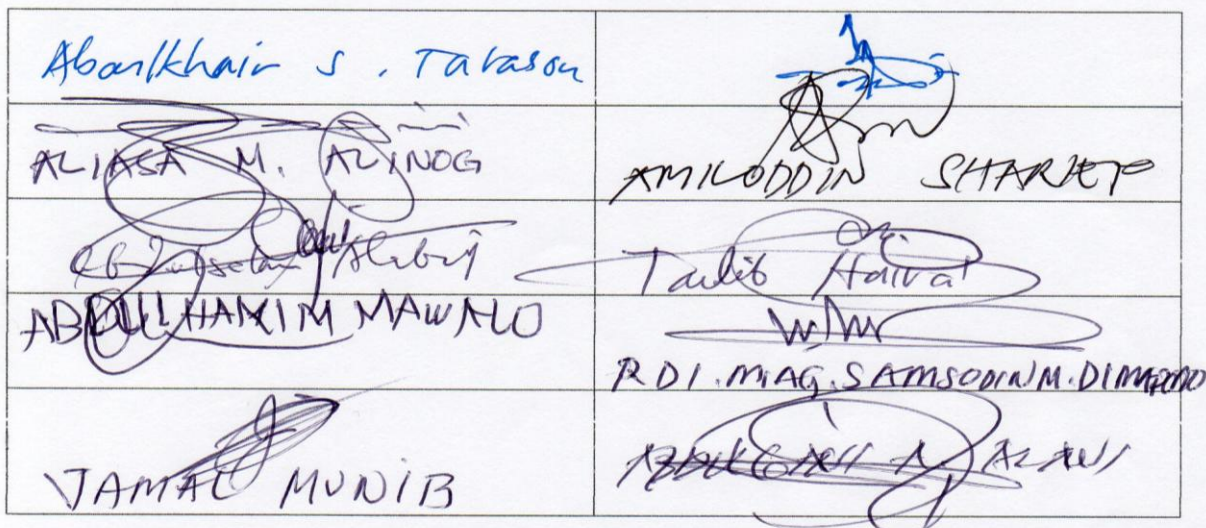 Abonlkhair S. Tarason
ALIASA M. ALINOG
AMILODDIN SHARIEF
Talib Hairat
ABDULHAKIM MAWALO
RDI.MIAG.SAMSODIN M.
JAMAL MUNIB
ALAWI